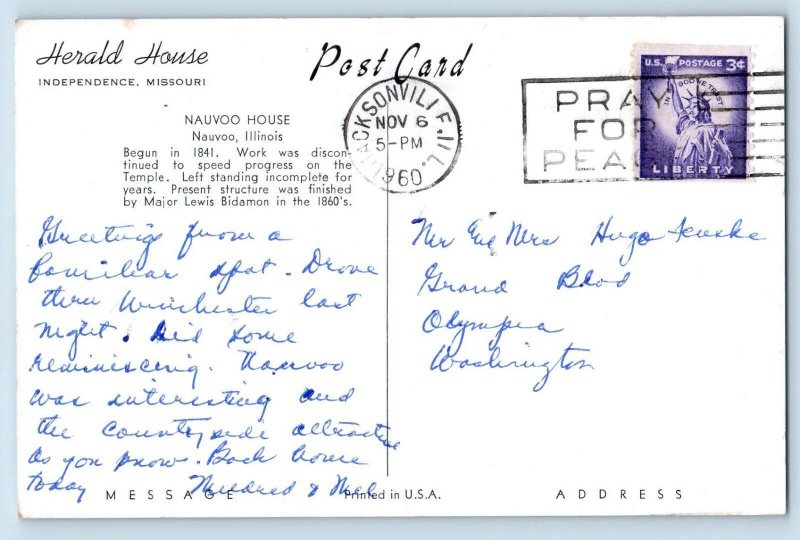 Herald House
INDEPENDENCE, MISSOURI
Post Card
NAUVOO HOUSE
Nauvoo, Illinois
Begun in 1841. Work was discon-
tinued to speed progress on the
Temple. Left standing incomplete for
years. Present structure was finished
by Major Lewis Bidamon in the 1860's.
JACKSONVILLE, ILL.
NOV 6
5-PM
1960
PRAY
FOR
PEACE
U.S. POSTAGE 3¢
IN GOD WE TRUST
LIBERTY
Greetings from a
familiar spot. Drove
thru Winchester last
night. Did some
reminiscing. Nauvoo
was interesting and
the countryside attractive
as you know. Back home
today Mildred &
Mr and Mrs Hugo
Grand Blvd
Olympia
Washington
MESSAGE
Printed in U.S.A.
ADDRESS